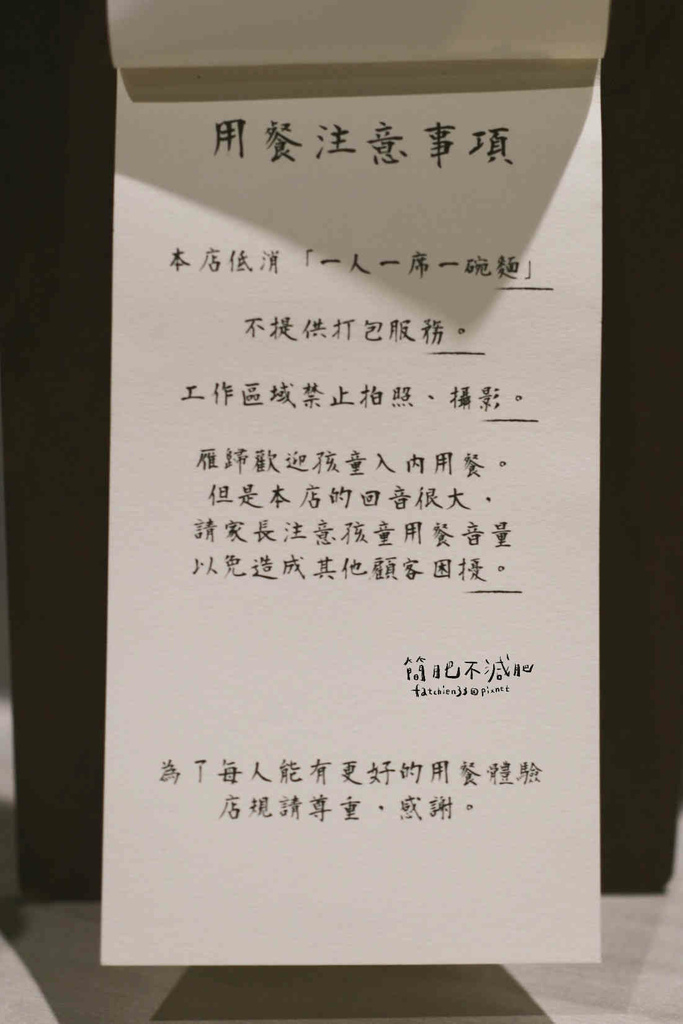 用餐注意事項
本店低消「一人一席一碗麵」
不提供打包服務。
工作區域禁止拍照、攝影。
雁歸歡迎孩童入內用餐。
但是本店的回音很大、
請家長注意孩童用餐音量
以免造成其他顧客困擾。
簡肥不減肥
fatchien33@pixnet
為了每人能有更好的用餐體驗
店規請尊重、感謝。